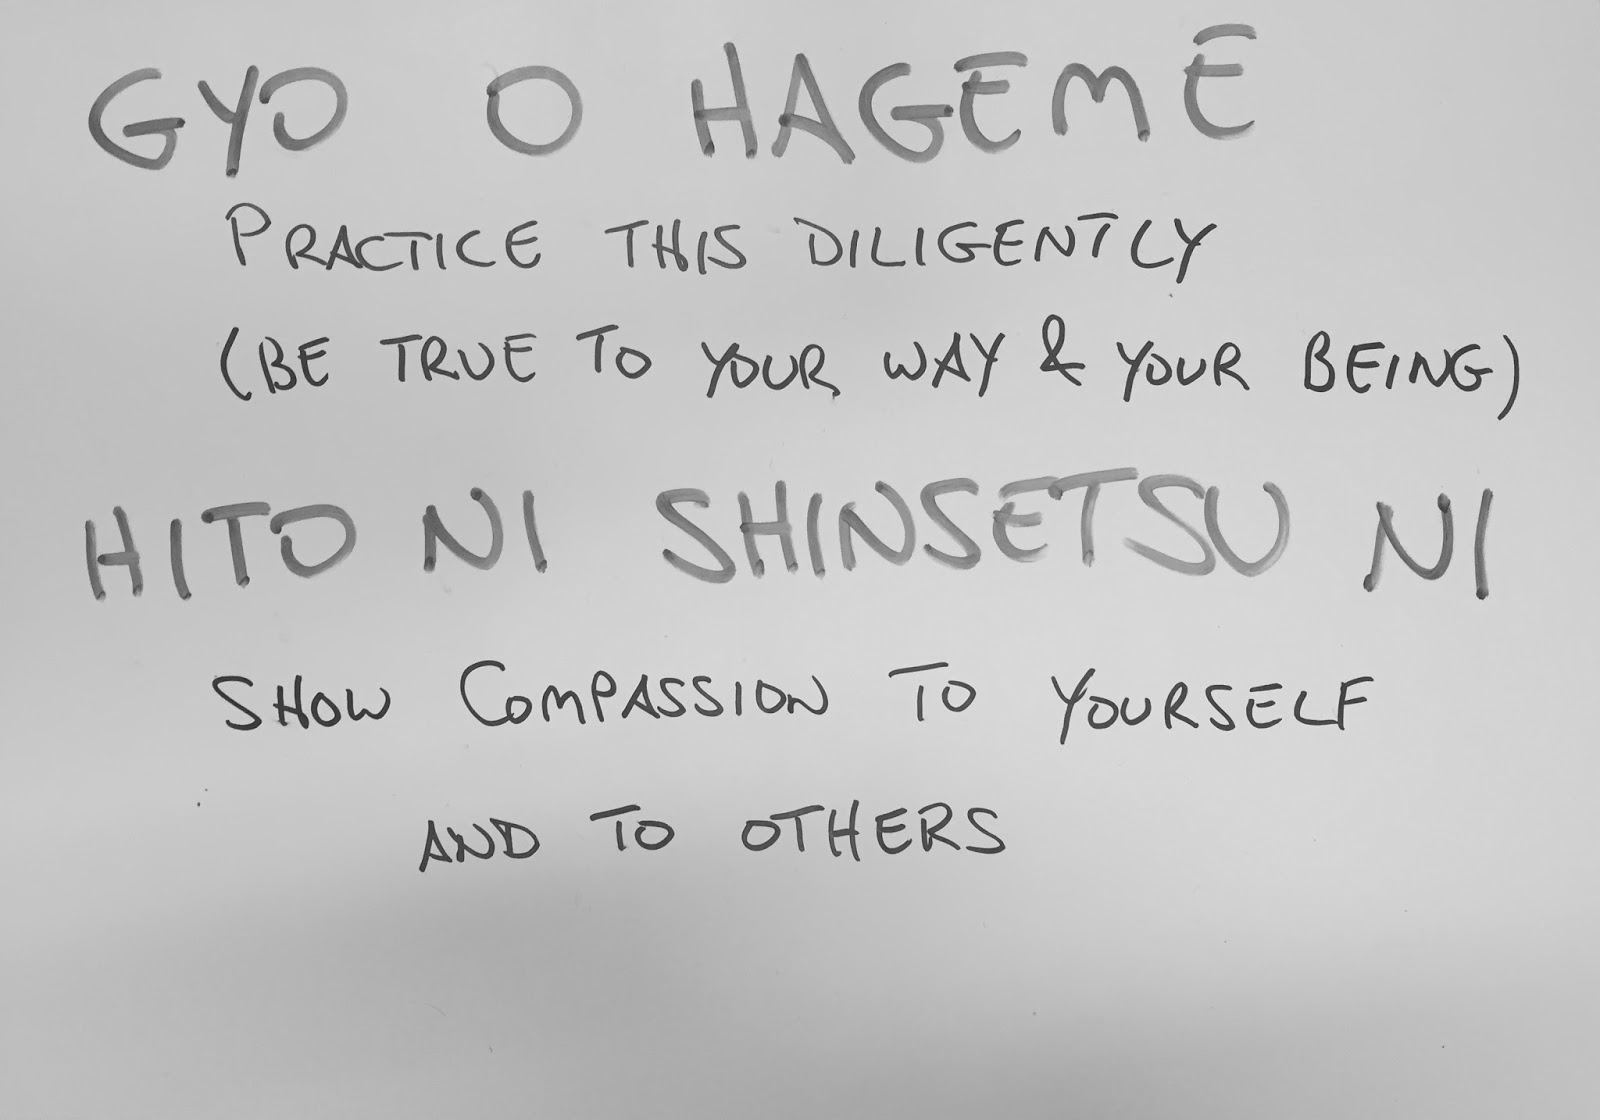 GYO O HAGEME
PRACTICE THIS DILIGENTLY
(BE TRUE TO YOUR WAY & YOUR BEING)
HITO NI SHINSETSU NI
SHOW COMPASSION TO YOURSELF
AND TO OTHERS